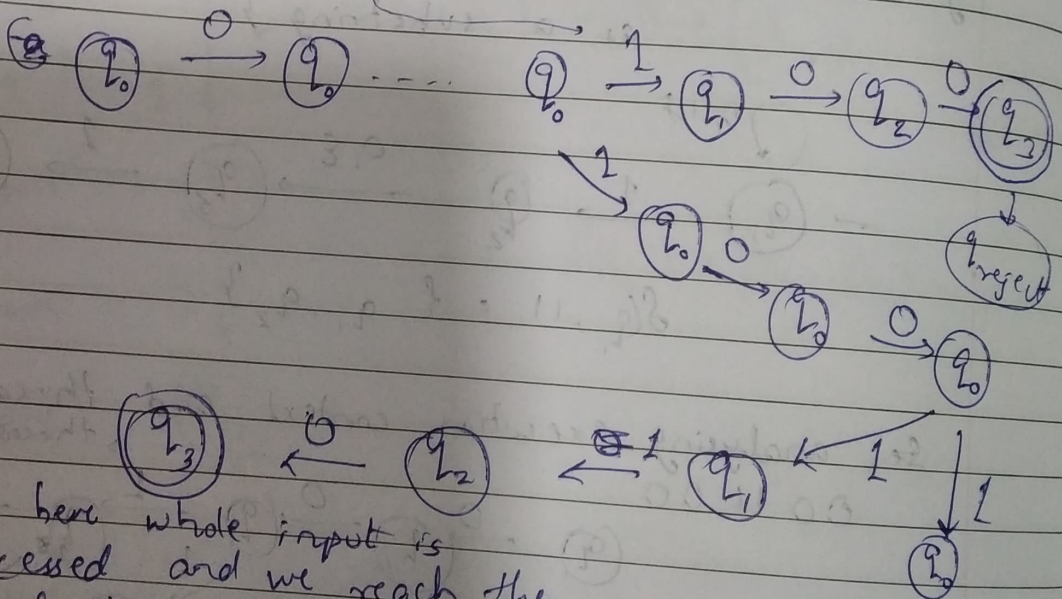 q₀ 0 q₀ .... q₀ 1 q₁ 0 q₂ 0 q₃
1
q₀ 0 q reject
q₀ 0
q₀
q₃ 0 q₂ 1 q₁ 1 1
q₀
here whole input is
cessed and we reach the